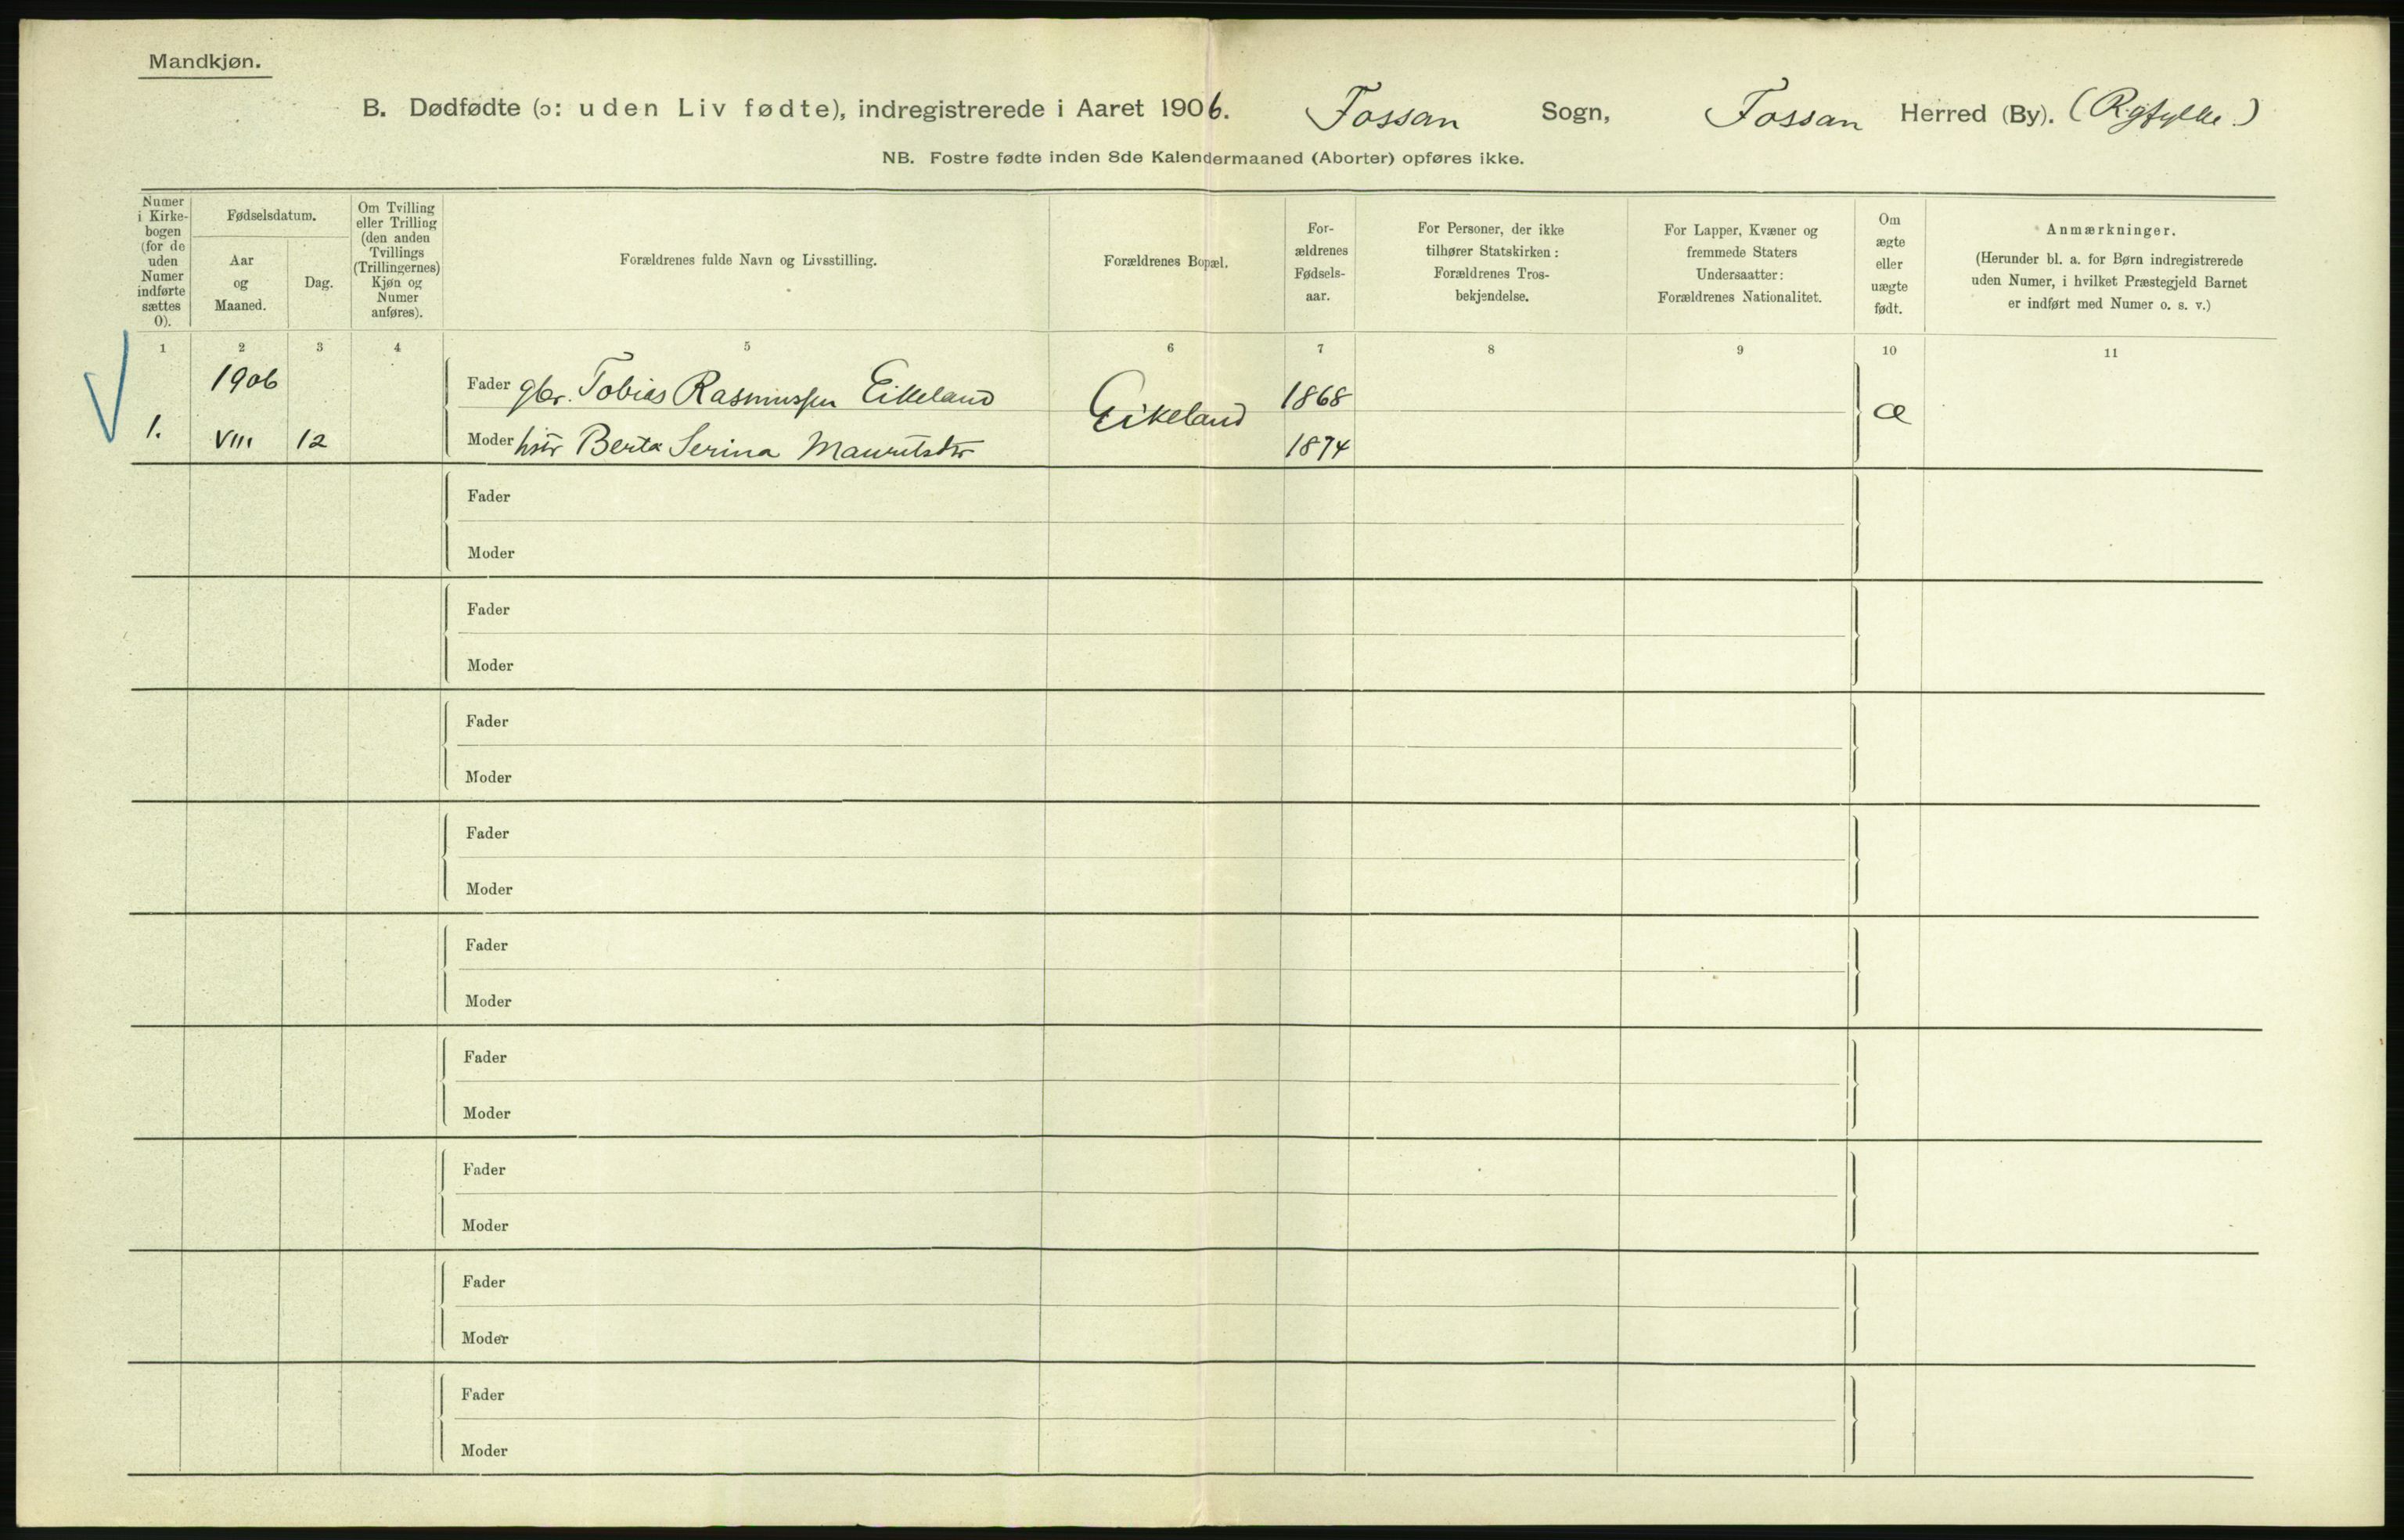 Mandkjøn.
B. Dødfødte (ɔ: uden Liv fødte), indregistrerede i Aaret 1906. Fossan Sogn, Fossan Herred (By). (Rygfylke.)
NB. Fostre fødte inden 8de Kalendermaaned (Aborter) opføres ikke.
Numer i Kirke-bogen (for de uden Numer indførte sættes 0).
Fødselsdatum.
Aar og Maaned.
Dag.
Om Tvilling eller Trilling (den anden Tvillings (Trillingernes) Kjøn og Numer anføres).
Forældrenes fulde Navn og Livsstilling.
Forældrenes Bopæl.
For-ældrenes Fødsels-aar.
For Personer, der ikke tilhører Statskirken: Forældrenes Tros-bekjendelse.
For Lapper, Kvæner og fremmede Staters Undersaatter: Forældrenes Nationalitet.
Om ægte eller uægte født.
Anmærkninger.
(Herunder bl. a. for Børn indregistrerede uden Numer, i hvilket Præstegjeld Barnet er indført med Numer o. s. v.)
1 2 3 4 5 6 7 8 9 10 11
1906 Fader gbr. Tobias Rasmussen Eikeland Eikeland 1868 æ
1. VIII 12 Moder hstr Berta Serina Mauritsdtr 1874
Fader
Moder
Fader
Moder
Fader
Moder
Fader
Moder
Fader
Moder
Fader
Moder
Fader
Moder
Fader
Moder
Fader
Moder